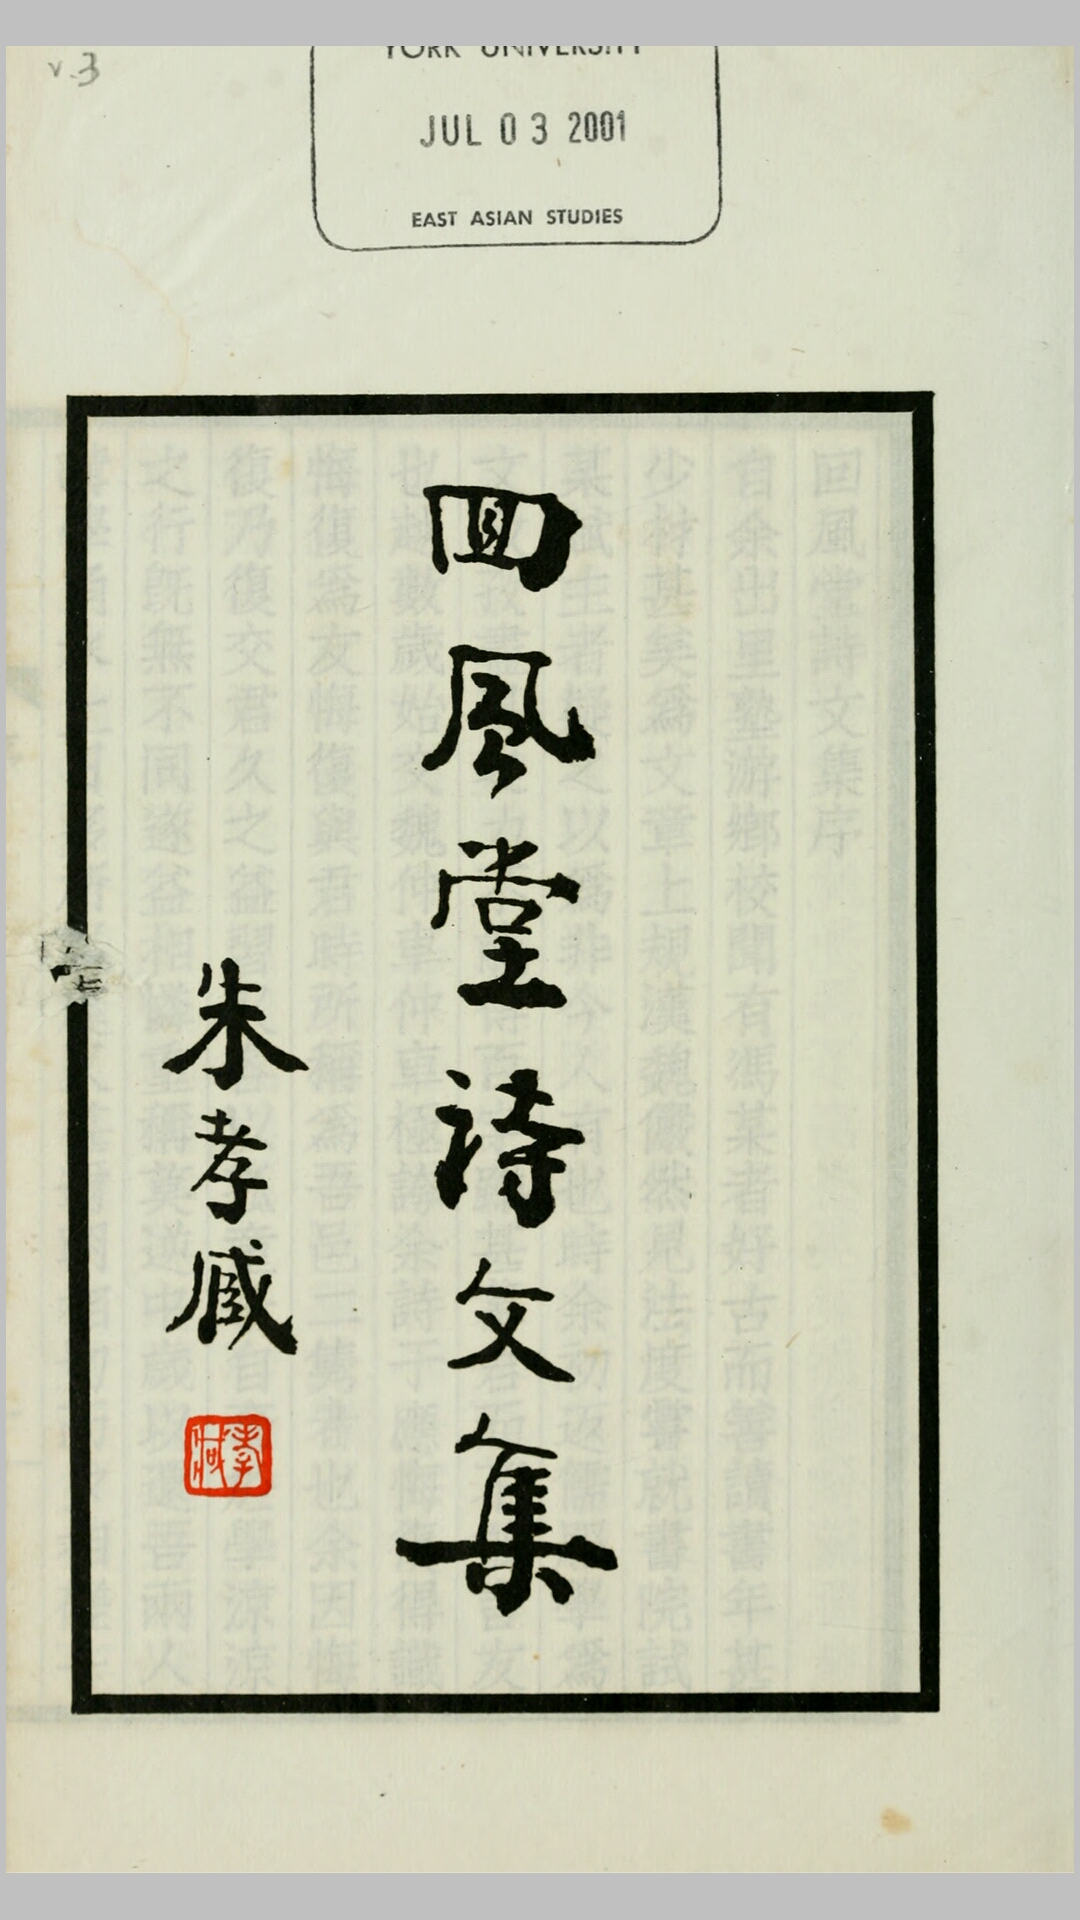 v.3
YORK UNIVERSITY
JUL 03 2001
EAST ASIAN STUDIES
回風堂詩文集
朱孝臧
孝臧